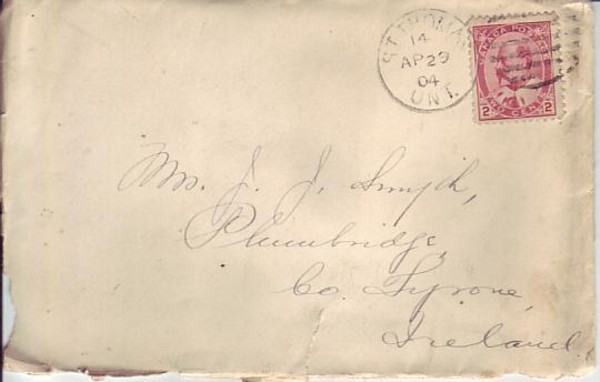 ST THOMAS
14
AP 29
04
ONT.
CANADA POSTAGE
2 TWO CENTS 2
Mrs. J. J. Smyth,
Plumbridge,
Co. Tyrone,
Ireland.